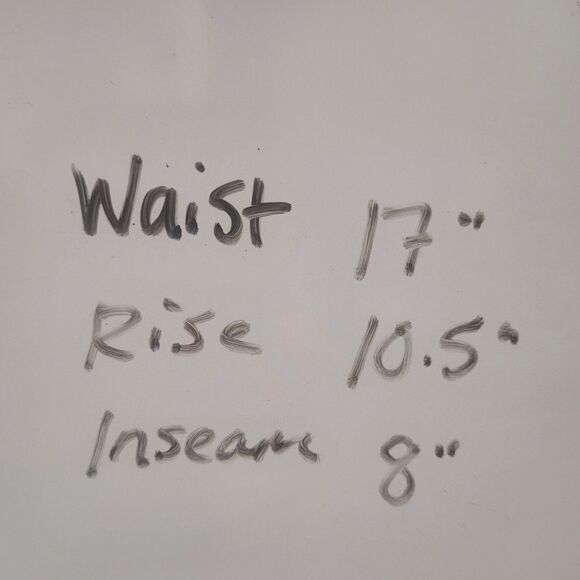 Waist 17"
Rise 10.5"
Inseam 8"